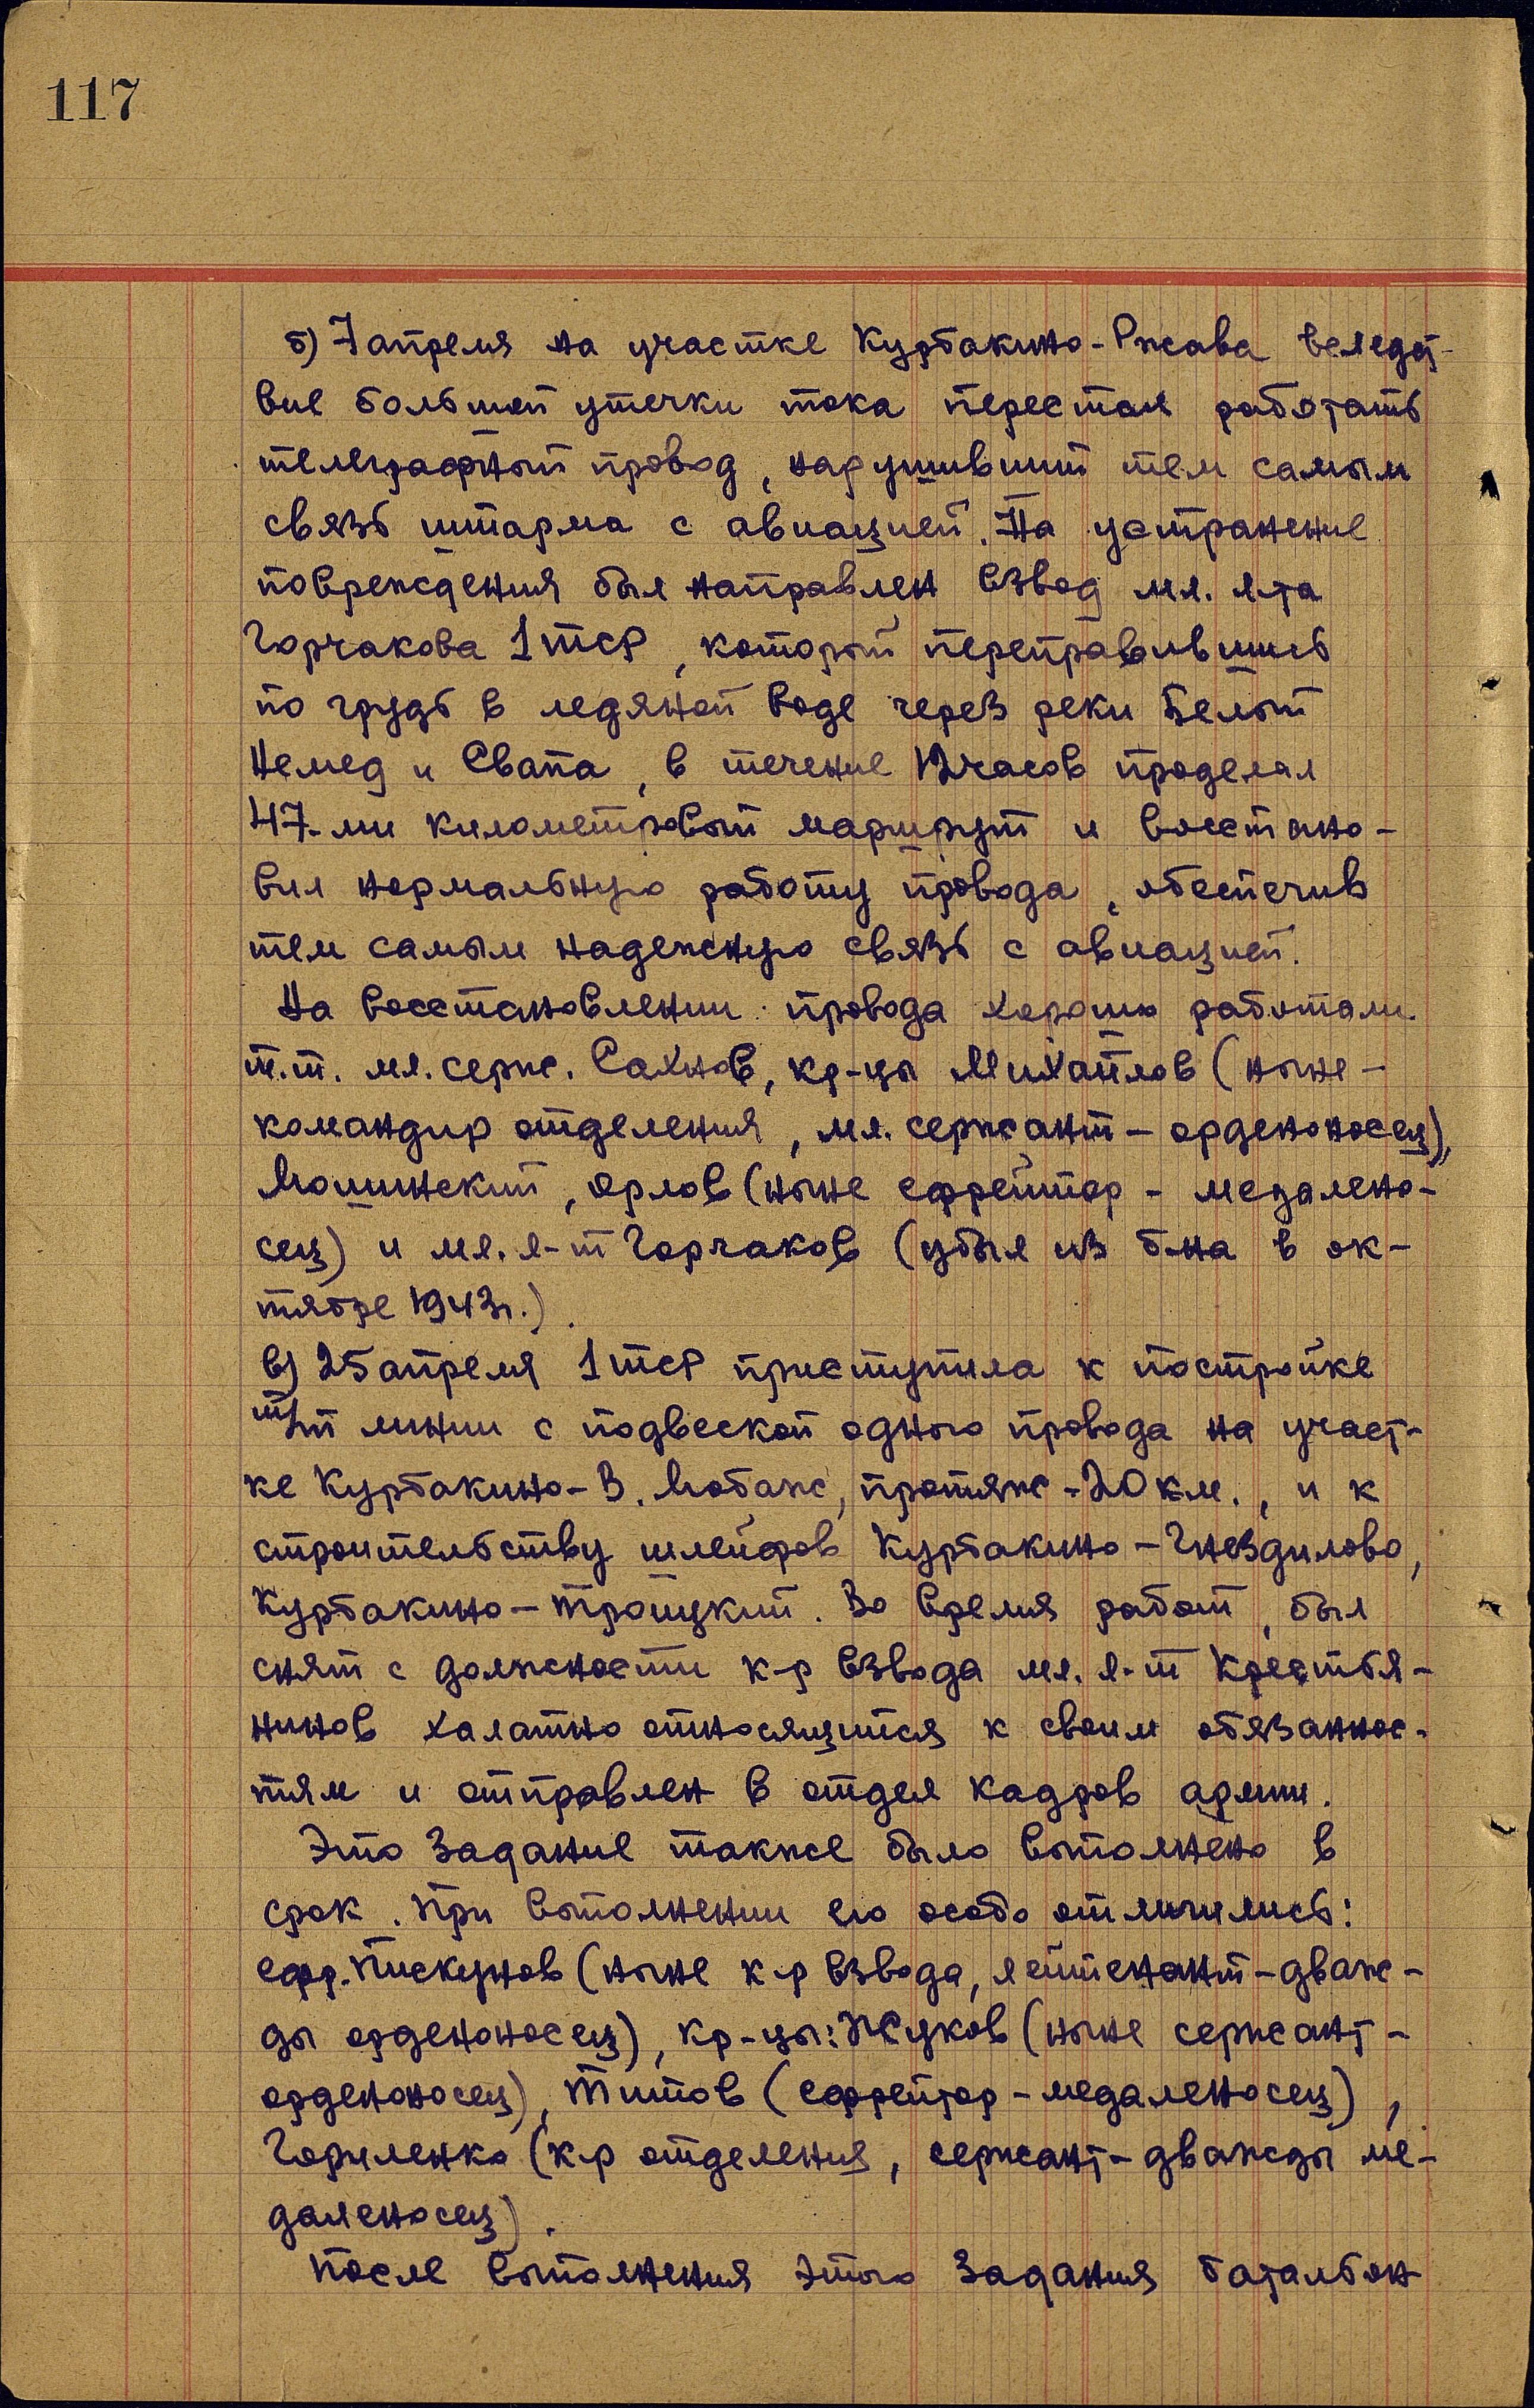 117
б) 7 апреля на участке Курбакино-Ржава вследст-
вие большой утечки тока перестал работать
телеграфный провод, нарушивший тем самым
связь штарма с авиацией. На устранение
повреждения был направлен взвод мл. л-та
Горчакова 1 тср, который переправившись
по грудь в ледяной воде через реки Белый
Немед и Свапа, в течение 12 часов проделал
47-ми километровый маршрут и восстано-
вил нормальную работу провода, обеспечив
тем самым надежную связь с авиацией.
На восстановлении провода хорошо работали
т.т. мл. серж. Сахнов, кр-цы Михайлов (ныне -
командир отделения, мл. сержант - орденоносец),
Молинский, Орлов (ныне ефрейтор - медалено-
сец) и мл. л-т Горчаков (убыл из б-на в ок-
тябре 1943 г.).
в) 25 апреля 1 тср приступила к постройке
т/т линии с подвеской одного провода на участ-
ке Курбакино - В. Любаж, протяж - 20 км., и к
строительству шлейфов Курбакино - Гнездилово,
Курбакино - Троицкий. Во время работ, был
снят с должности к-р взвода мл. л-т Крестья-
нинов халатно относящийся к своим обязаннос-
тям и отправлен в отдел кадров армии.
Это задание также было выполнено в
срок. При выполнении его особо отличились:
ефр. Пискунов (ныне к-р взвода, лейтенант - дваж-
ды орденоносец), кр-цы: Жуков (ныне сержант -
орденоносец), Титов (ефрейтор - медаленосец),
Гориленко (к-р отделения, сержант - дважды ме-
даленосец).
После выполнения этого задания батальон